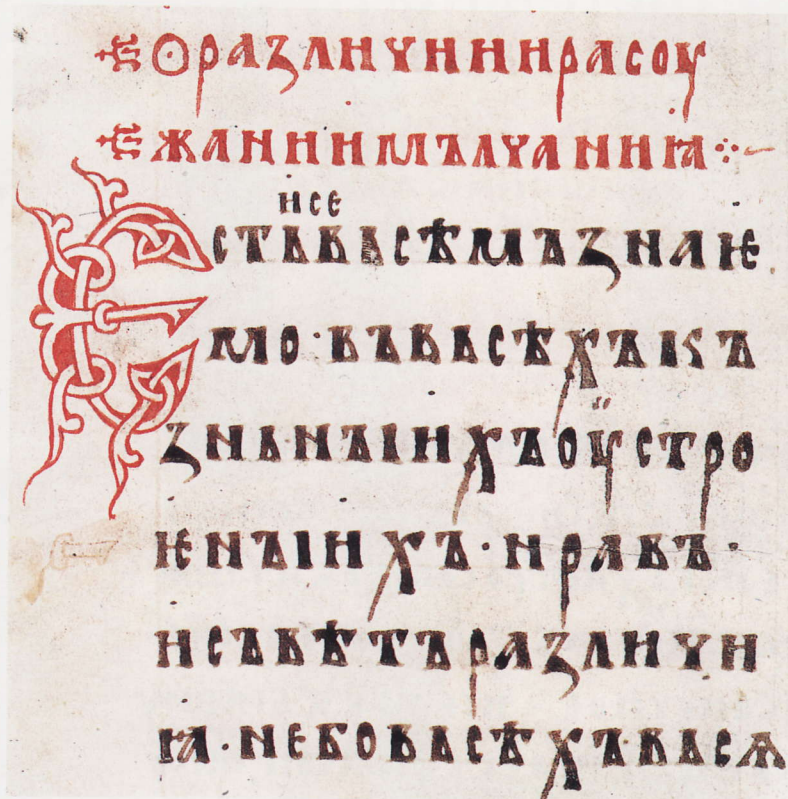 о различнии расоу
жаниимълчаниꙗ ⁘
исе
Єстьвьсѣмъзнаѥ
мо·въвьсѣхъкъ
зньнꙑихъоустро
ѥнꙑихъ·нравъ·
исъвѣтъразличн
ꙗ·небовьсѣхъвьсѧ